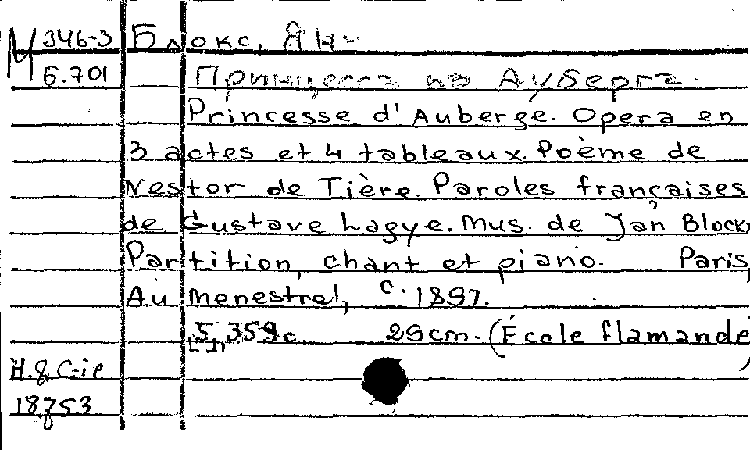 М 346-3 Блокс, Ян.
Б.701 Принцесса из Ауберга.
Princesse d'Auberge. Opera en
3 actes et 4 tableaux. Poème de
Nestor de Tière. Paroles françaises
de Gustave Lagye. Mus. de Jan Block,
Partition, chant et piano. Paris,
Au Menestrel, c. 1897.
[5], 359c 29cm. (École flamande,
H. & C-ie
18753